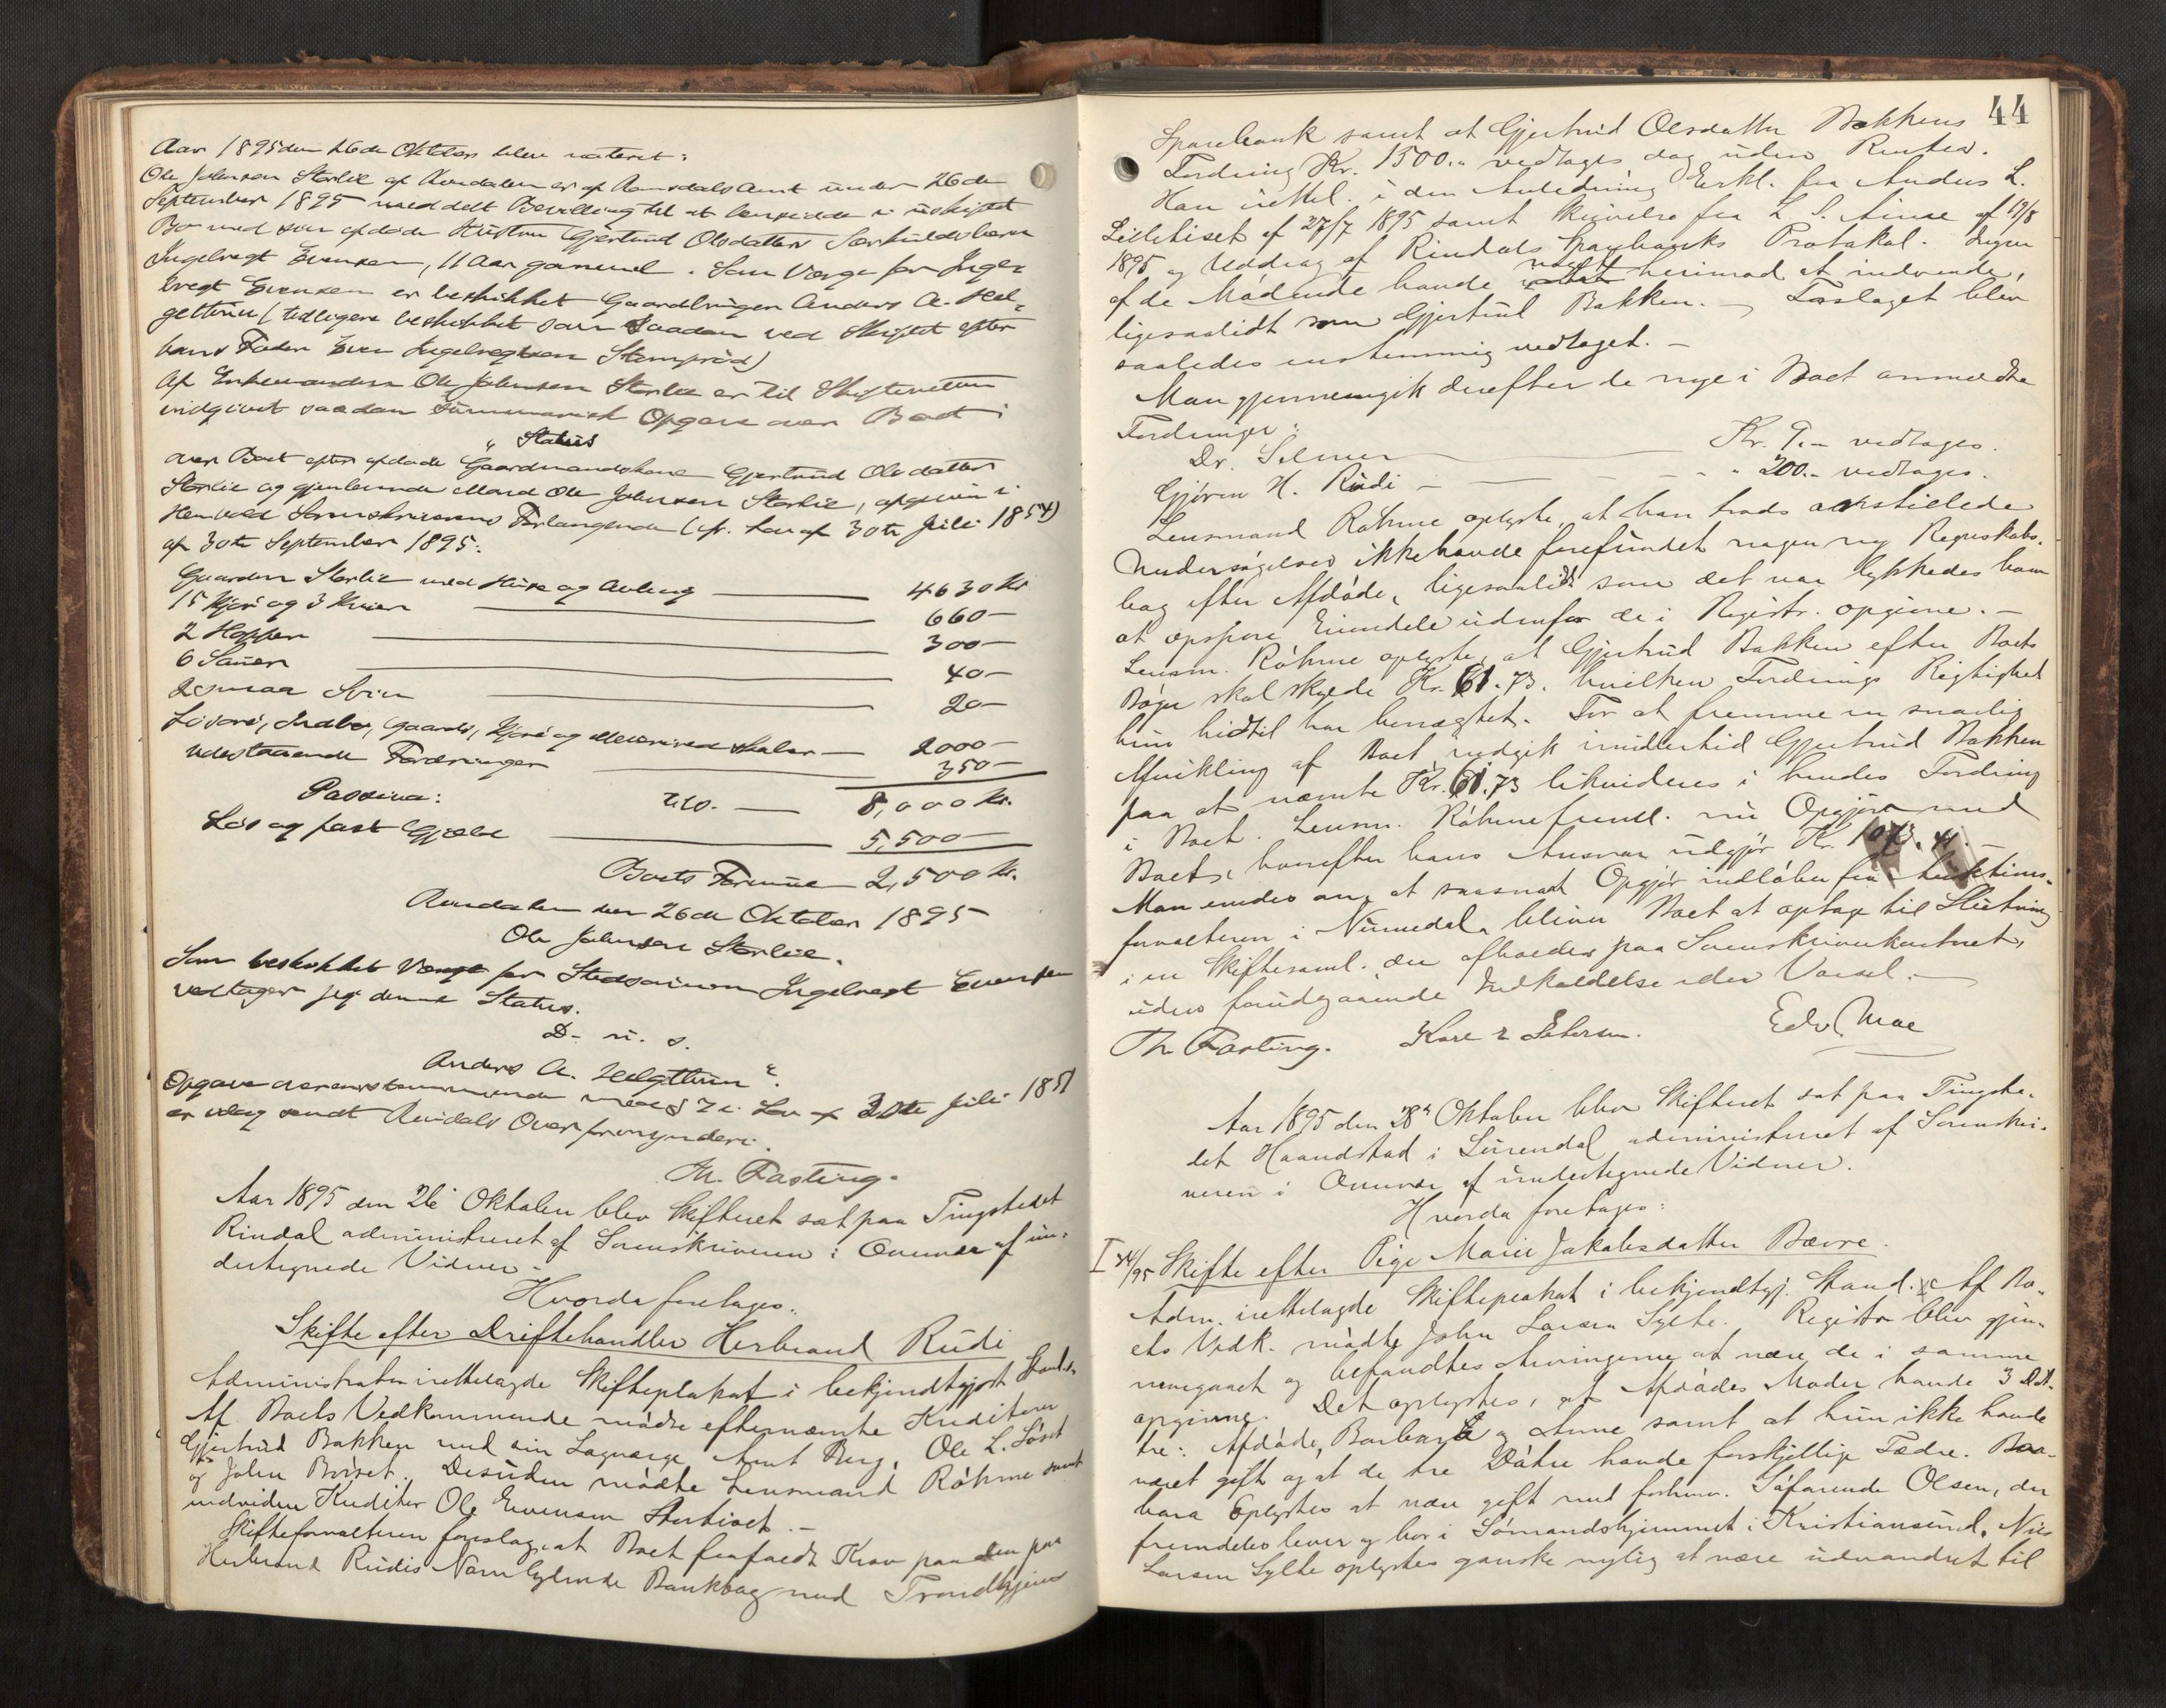 Aar 1895 den 26de Oktober blev noteret:
Ole Johnsen Storlie af Aursdalen er af Romsdals Amt under 26de
September 1895 meddelt Bevilling til at hensidde i uskiftet
Bo med sin afdøde Hustru Gjertrud Olsdatters Særkuldsbarn
Ingebregt Evensen, 11 Aar gammel. Som Værge for Inge-
bregt Evensen er beskikket Gaardbruger Anders A. Hel-
gettun (tidligere beskikket som Saadan ved Skiftet efter
hans Fader Even Ingebregtsen
Af Enkemanden Ole Johnsen Storlie er til Skifteretten
indgivet saadan summarisk Opgave over Boet:
„ Status
over Boet efter afdøde Gaardmandskone Gjertrud Olsdatter
Storlie og gjenlevende Mand Ole Johnsen Storlie, afgiven i
Henhold Sorenskriverens Forlangende (cfr. Lov af 30te Juli 1851)
af 30te September 1895:
Gaarden Storlie med Huse og Avling — 4630 Kr
15 Kjør og 3 — 660 —
2 Hopper — 300 —
6 Sauer — 40 —
2 smaa Svin — 20 —
Løsøre, Indbo, Gaards, Kjøre og — 2000 —
udestaaende Fordringer — 350 —
Tils. — 8,000 Kr.
Passiva:
Løs og fast Gjæld — 5,500 —
Boets Formue 2,500 Kr.
den 26de Oktober 1895
Ole Johnsen Storlie.
Som beskikket Værge for Stedsønnen Ingebregt Evensen
vedtager jeg denne Status.
D. u. s.
Anders A. Helgettun “.
Opgave overensstemmende med § 7 i Lov af 30te Juli 1851
er idag sendt Rindals Overformynderi.
Th. Fasting.
Aar 1895 den 26 Oktober blev Skifteret sat paa Tingstedet
Rindal administreret af Sorenskriveren i Overvær af un-
dertegnede Vidner.
Hvorda foretages:
Skifte efter Driftehandler Herbrand Rudi
Administrator irettelagde Skifteplakat i bekjendtgjort Stand.
Af Boets Vedkommende mødte efternævnte Kreditorer
Gjertrud Bakken med sin Lagværge Arnt Berg, Ole L. Løset
og John Bøiset. Desuden mødte Lensmand Røhme samt
endvidere Kreditor Ole Evensen
Skifteforvalteren foreslog, at Boet frafaldt Krav paa den paa
Herbrand Rudis Navn lydende Bankbog med Trondhjems
44
Sparebank samt at Gjertrud Olsdatter Bakkens
Fordring Kr. 1500.„ vedtages dog uden Renter.
Han irettel. i den Anledning Erkl. fra Anders L.
af 27/7 1895 samt Skrivelse fra L. S. af 19/8
1895 og Uddrag af Rindals Sparebanks Protokol. Ingen
af de Mødende havde noget herimod at indvende,
ligesaalidt som Gjertrud Bakken. – Forslaget blev
saaledes enstemmig vedtaget. –
Man gjennemgik derefter de nye i Boet anmeldte
Fordringer:
Dr. Selmer — Kr. 9.„ vedtages.
Gjøren H. Rudi — „ 200.„ vedtages.
Lensmand Røhme oplyste, at han trods anstillede
Undersøgelser ikke havde forefundet nogen ny Regnskabs-
bog efter Afdøde, ligesaalidt som det var lykkedes ham
at opspore Eiendele udenfor de i Registr. opgivne. –
Lensm. Røhme oplyste, at Gjertrud Bakken efter Boets
Bøger skal skylde Kr. 61.73. hvilken Fordrings Rigtighed
hun hidtil har benægtet. For at fremme en snarlig
Afvikling af Boet indgik imidlertid Gjertrud Bakken
paa at nævnte Kr. 61.73 likvideres i hendes Fordring
i Boet. Lensm. Røhme freml. nu Opgjør med
Boet, hvorefter hans Ansvar udgjør Kr.
Man enedes om, at saasnart Opgjør indløber fra Auktions-
forvalteren i Numedal, bliver Boet at optage til Slutning
i en Skiftesaml. der afholdes paa Sorenskriverkontoret,
uden forudgaaende Indkaldelse eller Varsel. –
Th. Fasting. Edv. Moe
Aar 1895 den 28de Oktober blev Skifteret sat paa Tingste-
det Haandstad i Surendal administreret af Sorenskri-
veren i Overvær af undertegnede Vidner.
Hvorda foretages:
I 14/95 Skifte efter Pige Marie Jakobsdatter Bævre.
Adm. irettelagde Skifteplakat i bekjendtgj. Stand. Af Bo-
ets Vedk. mødte John Larsen Sylte. Registr. blev gjen-
nemgaaet og befandtes Arvingerne at være de i samme
opgivne. Det oplystes, at Afdødes Moder havde 3 Døt-
tre: Afdøde, Barbara og Anne samt at hun ikke havde
været gift og at de tre Døtre havde forskjellige Fædre. Bar-
bara oplystes at være gift med forhenv. Søfarende Olsen, der
fremdeles lever og bor i Sømandshjemmet i Kristiansund. Nils
Larsen Sylte oplystes ganske nylig at være udvandret til